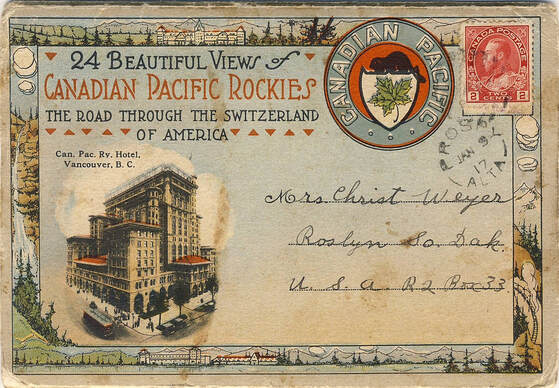 24 BEAUTIFUL VIEWS of
CANADIAN PACIFIC ROCKIES
THE ROAD THROUGH THE SWITZERLAND
OF AMERICA
CANADIAN PACIFIC
CANADA POSTAGE
2 TWO CENTS 2
JAN 9
17
ALTA
Can. Pac. Ry. Hotel,
Vancouver, B. C.
Mrs. Christ Weyer
Roslyn So. Dak
U. S. A. R2 Box 33